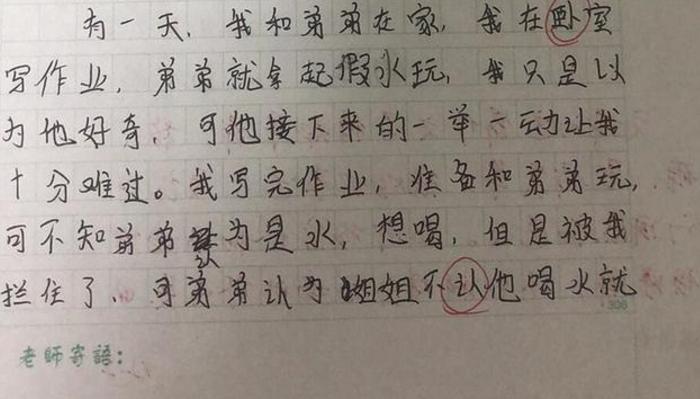 有一天，我和弟弟在家，我在卧室
写作业，弟弟就拿起假水玩，我只是以
为他好奇，可他接下来的一举一动让我
十分难过。我写完作业，准备和弟弟玩，
可不知弟弟认为是水，想喝，但是被我
拦住了、可弟弟认为姐姐不认他喝水就
老師寄語：